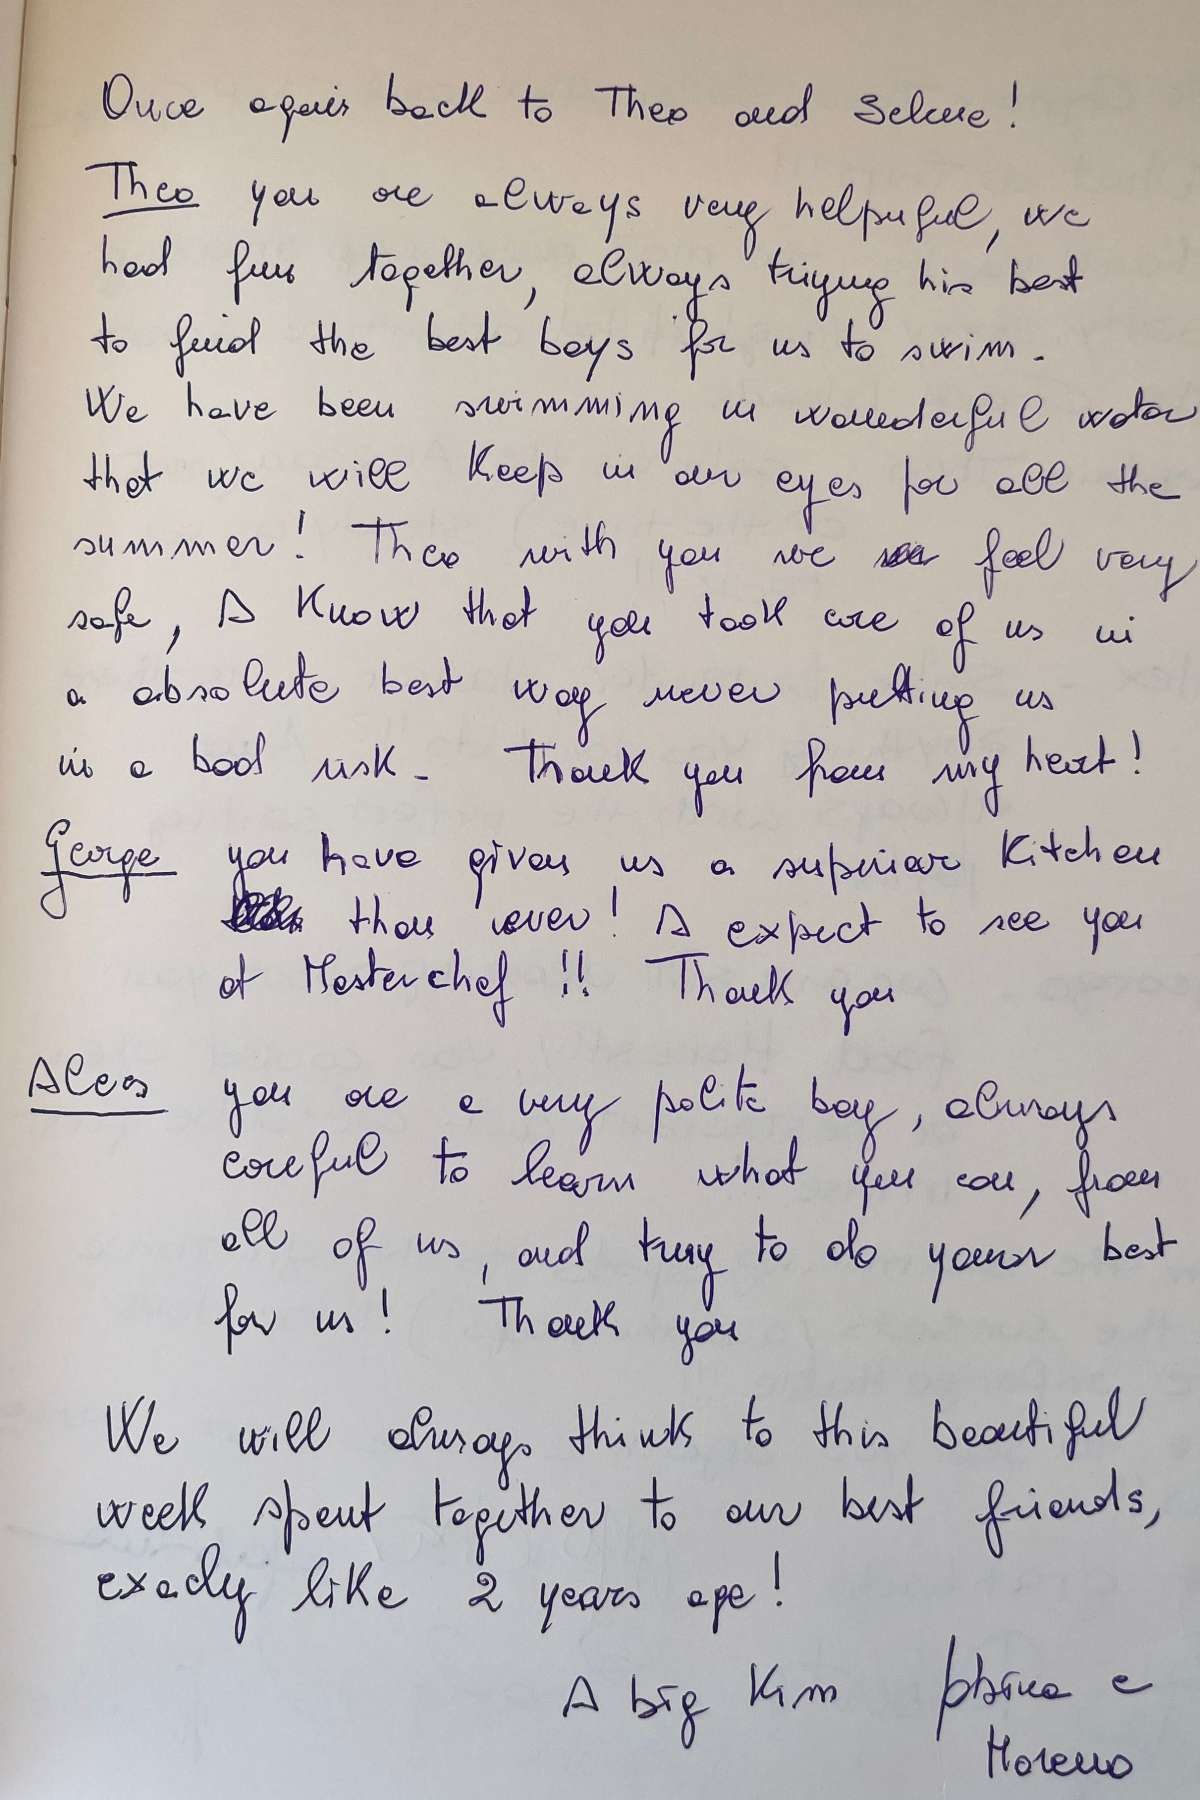 Once again back to Theo and Selene!
Theo you are always very helpuful, we
had fun together, always triyng his best
to find the best bays for us to swim.
We have been swimming in wonderful water
that we will keep in our eyes for all the
summer! Theo with you we feel very
safe, I know that you took care of us in
a absolute best way never putting us
in a bad risk. Thank you from my heart!
George you have given us a superior kitchen
than ever! I expect to see you
at Masterchef!! Thank you
Alexos you are a very polite boy, always
careful to learn what you can, from
all of us, and tray to do yours best
for us! Thank you
We will always think to this beautiful
week spent together to our best friends,
exacly like 2 years ago!
A big Kim e
Moreno